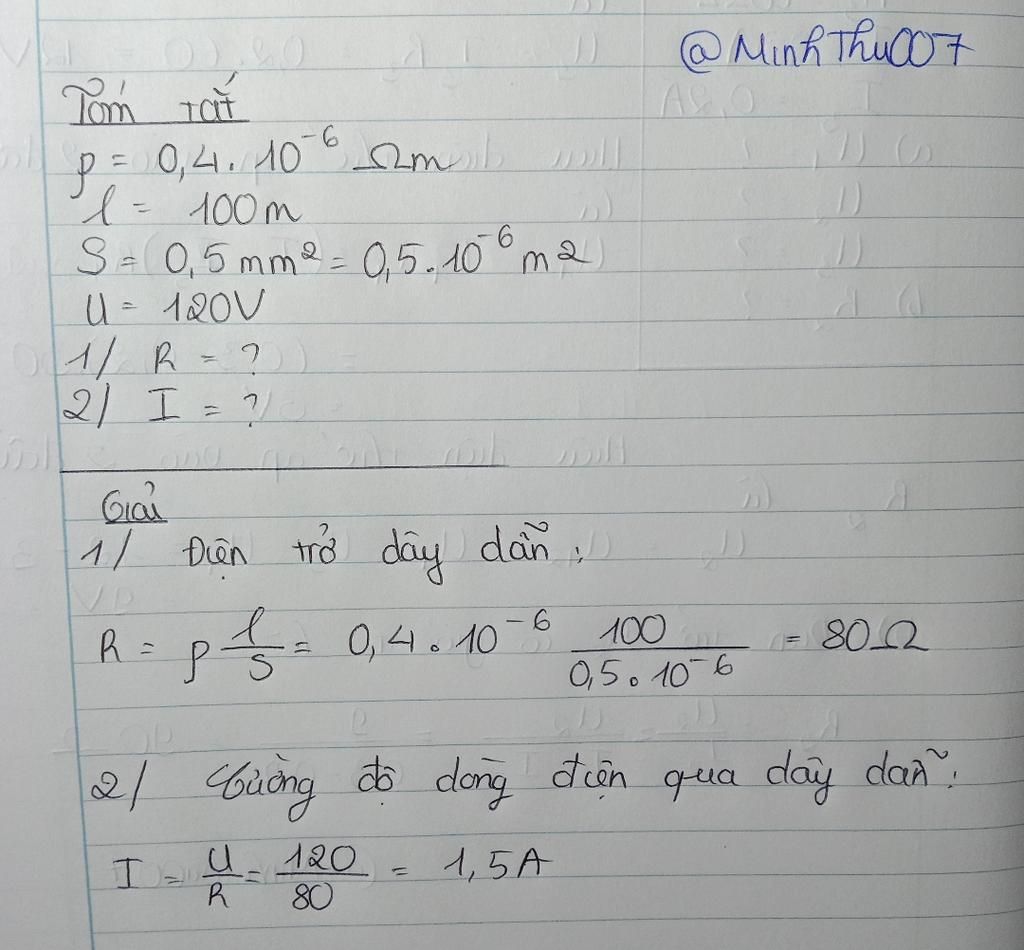 @MinhThu007
Tóm tắt
ρ = 0,4 . 10⁻⁶ Ωm
l = 100m
S = 0,5 mm² = 0,5 . 10⁻⁶ m2
U = 120V
1/ R = ?
2/ I = ?
Giải
1/ Điện trở dây dẫn:
R = ρ l/S = 0,4 . 10⁻⁶ 100/(0,5 . 10⁻⁶) = 80Ω
2/ Cường độ dòng điện qua dây dẫn:
I = U/R = 120/80 = 1,5A